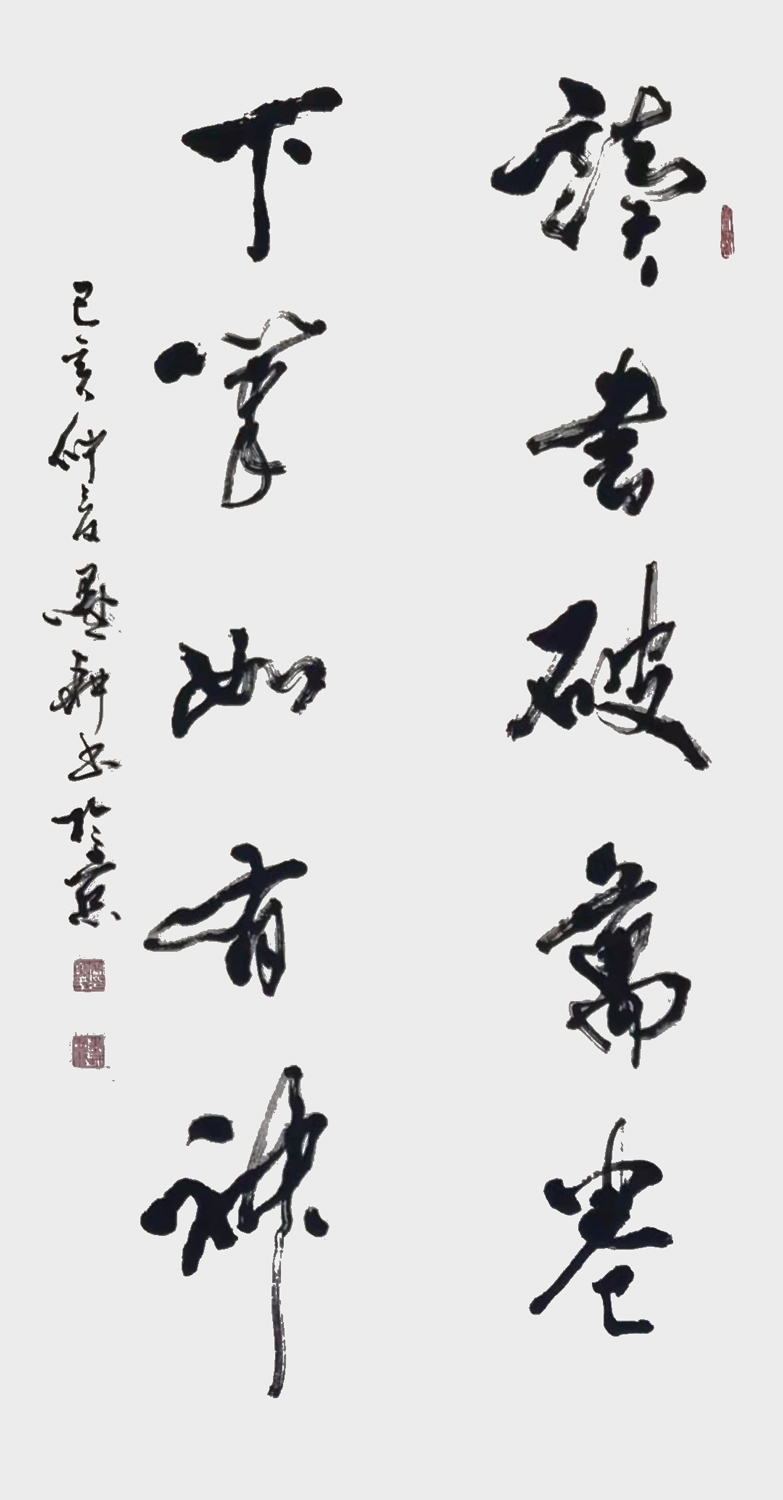 讀書破萬卷
下筆如有神
己亥仲夏墨耕书於京